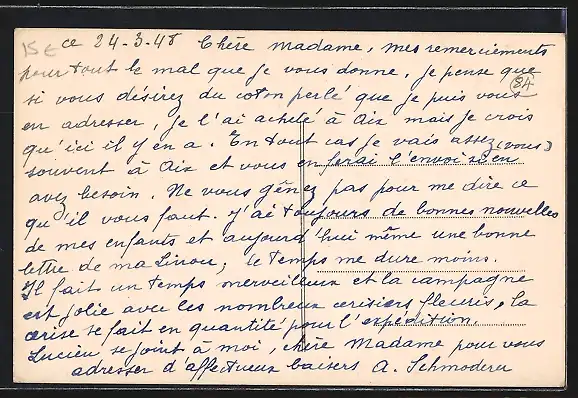 15€ ce 24-3-48 Chère Madame, mes remerciements
pour tout le mal que je vous donne, je pense que
(84)
si vous désirez du coton perlé que je puis vous
en adresser, je l'ai acheté à Aix mais je crois
qu'ici il y en a. En tout cas je vais assez (vous)
souvent à Aix et vous en ferai l'envoi si en
avez besoin. Ne vous gênez pas pour me dire ce
qu'il vous faut. J'ai toujours de bonnes nouvelles
de mes enfants et aujourd'hui même une bonne
lettre de ma Linou; le temps me dure moins.
Il fait un temps merveilleux et la campagne
est jolie avec les nombreux cerisiers fleuris, la
cerise se fait en quantité pour l'expédition.
Lucien, se joint à moi, chère Madame pour vous
adresser d'affectueux baisers A.